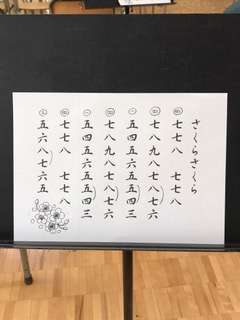 さくらさくら
七七八　七七八
七八九八七八七六
㊀五四五六五五四三
七八九八七八七六
㊀五四五六五五四三
七七八　七七八
五六八七六五